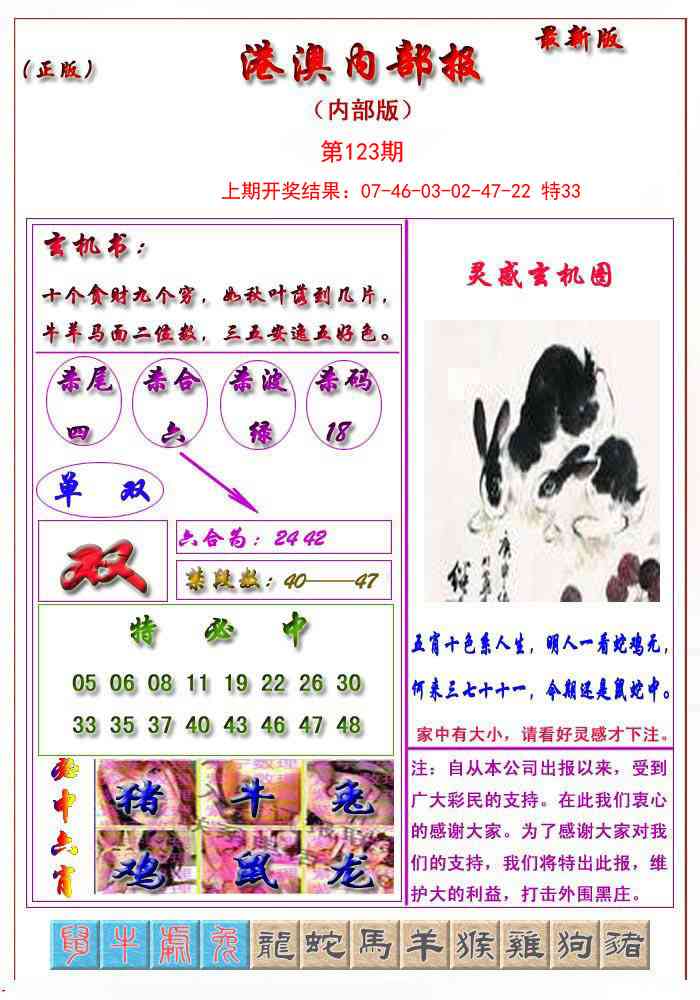 （正版）
港澳内部报
最新版
（内部版）
第123期
上期开奖结果：07-46-03-02-47-22 特33
玄机书：
十个贪财九个穷，如秋叶落到几片，
牛羊马面二位数，三五安逸五好色。
杀尾
四
杀合
六
杀波
绿
杀码
18
单 双
双
六合为：24 42
禁段数：40——47
特 必 中
05 06 08 11 19 22 26 30
33 35 37 40 43 46 47 48
必中六肖
猪 牛 兔
鸡 鼠 龙
灵感玄机图
五肖十色系人生，明人一看蛇鸡元，
何来三七十十一，今期还是鼠蛇中。
家中有大小，请看好灵感才下注。
注：自从本公司出报以来，受到
广大彩民的支持。在此我们衷心
的感谢大家。为了感谢大家对我
们的支持，我们将特出此报，维
护大的利益，打击外围黑庄。
鼠 牛 虎 兔 龍 蛇 馬 羊 猴 雞 狗 豬